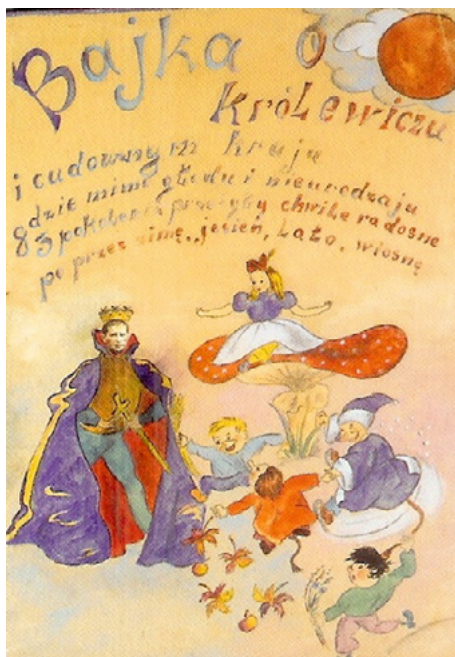 Bajka o
Królewiczu
i cudownym kraju
gdzie mimo głodu i nieurodzaju
83 pokolenia przeżyły chwile radosne
po przez zimę, jesień, lato, wiosnę